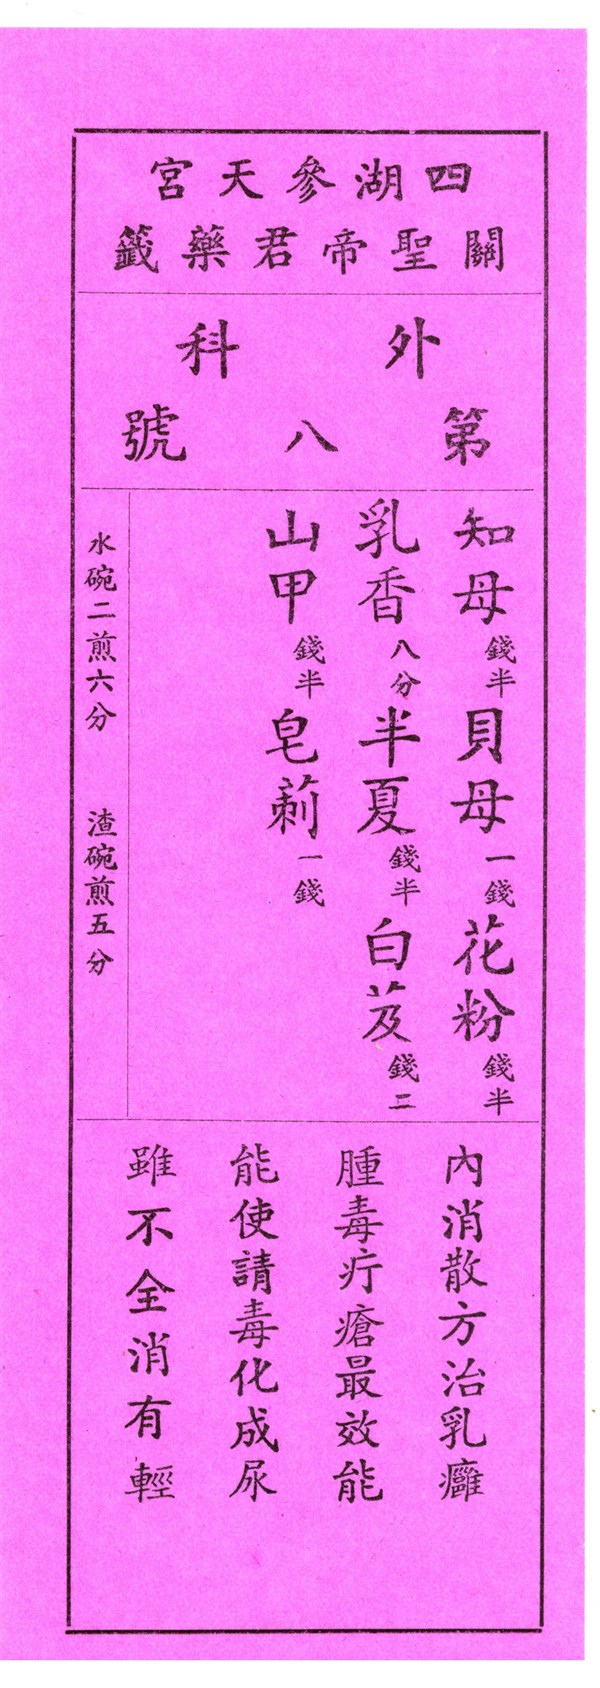 四湖參天宮
關聖帝君藥籤
外科
第八號
知母錢半貝母一錢花粉錢半
乳香八分半夏錢半白芨錢二
山甲錢半皂莿一錢
水碗二煎六分 渣碗煎五分
內消散方治乳癰
腫毒疔瘡最效能
能使請毒化成尿
雖不全消有輕